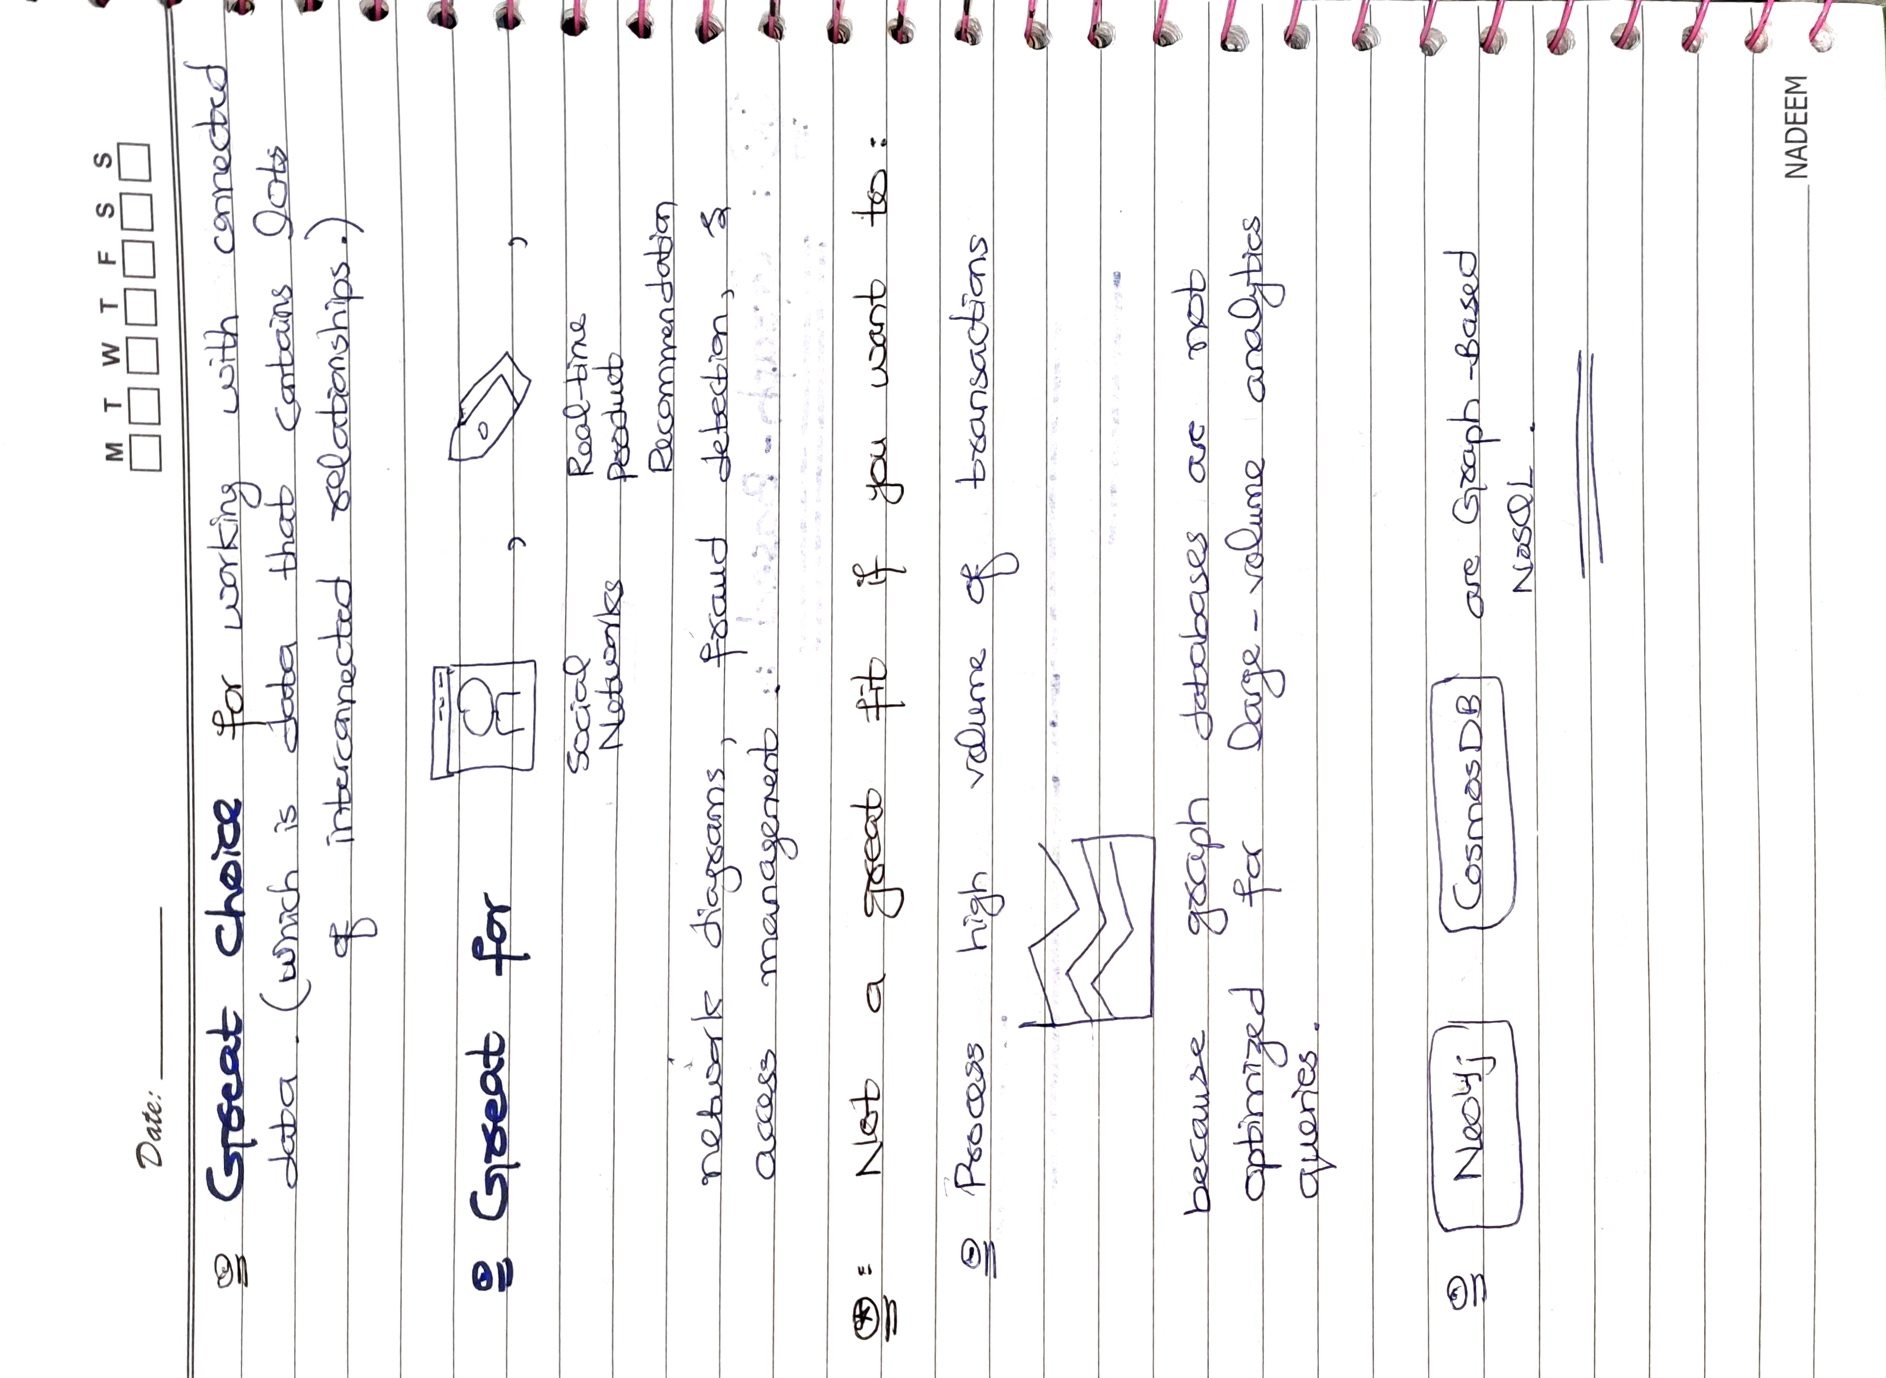 M T W T F S S
Date:
Great choice for working with connected
data. (which is data that contains lots
of interconnected relationships.)
Great for
,
,
Social
Networks
Real-time
product
Recommendation
network diagrams, fraud detection, &
access management.
Not a great fit if you want to:
Process high volume of transactions
because graph databases are not
optimized for large-volume analytics
queries.
Neo4j CosmosDB are Graph-Based
NoSQL.
NADEEM